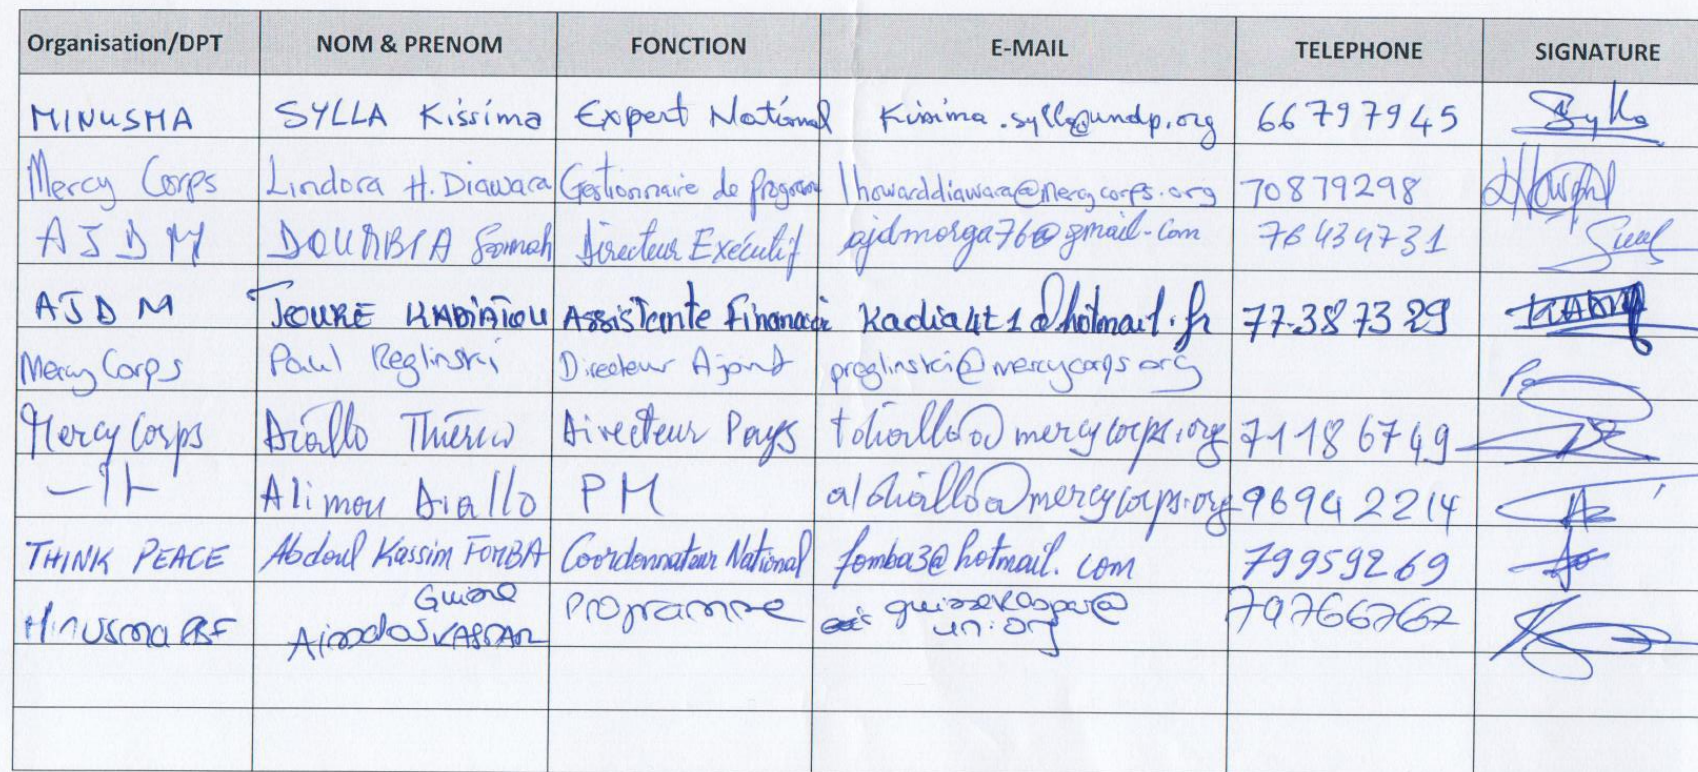 Organisation/DPT NOM & PRENOM FONCTION E-MAIL TELEPHONE SIGNATURE
MINUSMA SYLLA Kissima Expert National Kissima.sylla@undp.org 66797945 Sylla
Mercy Corps Lindora H. Diawara Gestionnaire de Program lhowarddiawara@mercycorps.org 70879298
AJDM DOUMBIA Directeur Exécutif ajdmorga76@gmail.com 76434731
AJDM TOURE KADIATOU Assistante Financiè Kadia4t1@hotmail.fr 77387329
Mercy Corps Paul Reglinski Directeur Ajont preglinski@mercycorps.org
Mercy Corps Diallo Thierno Directeur Pays tdiallo@mercycorps.org 71186749
Alimou Diallo PM aldiallo@mercycorps.org 96942214
THINK PEACE Abdoul Kassim FOMBA Coordonnateur National fomba3@hotmail.com 79959269
Minusma PBF Guire KASPAR Programme 79766767
un.org